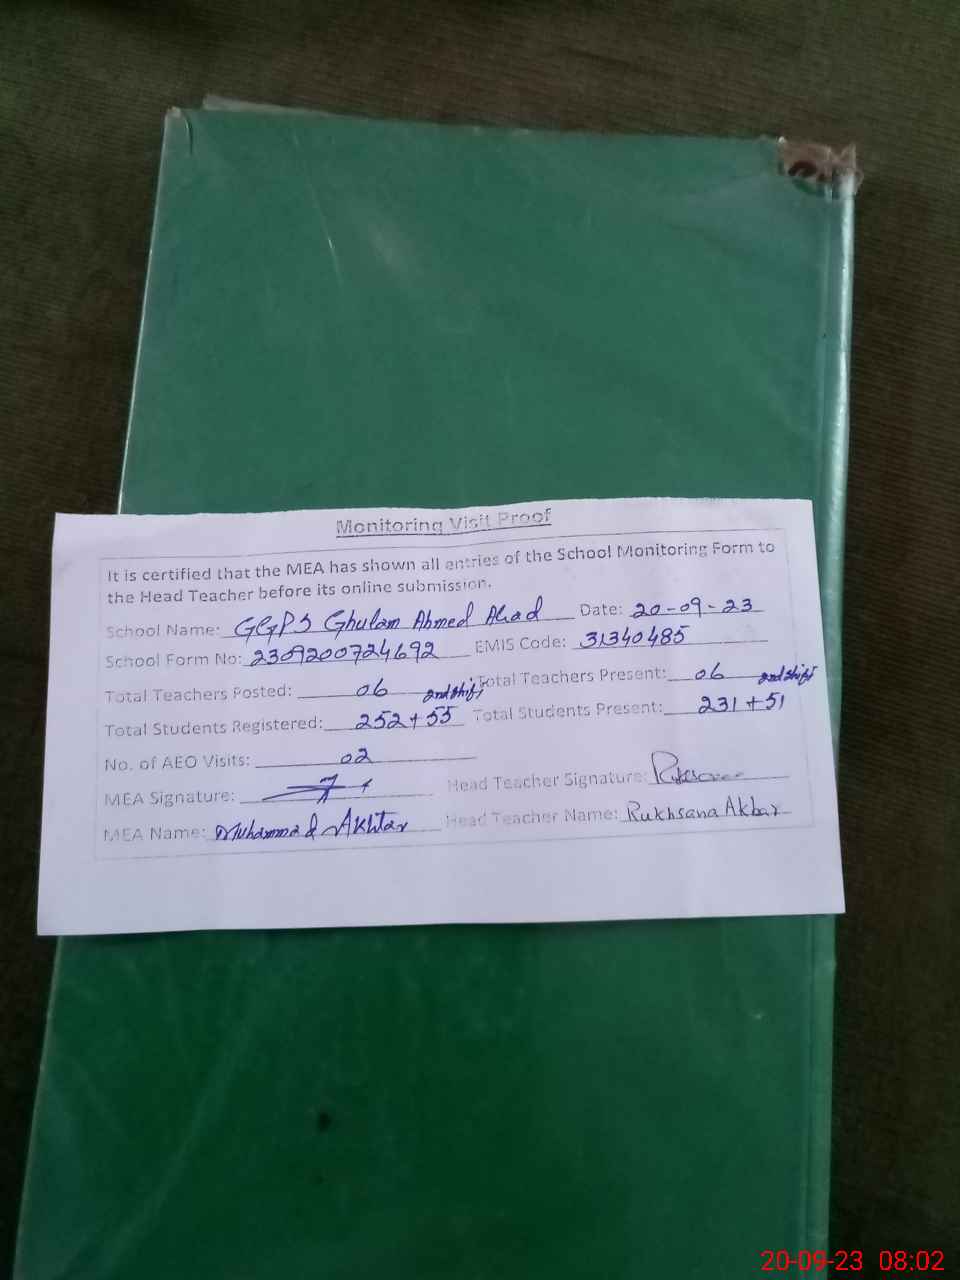 Monitoring Visit Proof
It is certified that the MEA has shown all entries of the School Monitoring Form to
the Head Teacher before its online submission.
School Name: GGPS Ghulam Ahmed Ahad Date: 20-09-23
School Form No: 2309200724692 EMIS Code: 31340485
Total Teachers Posted: 06 Total Teachers Present: 06
2nd shift 2nd shift
Total Students Registered: 252+55 Total Students Present: 231+51
No. of AEO Visits: 02
MEA Signature: Head Teacher Signature:
MEA Name: Muhammad Akhtar Head Teacher Name: Rukhsana Akbar
20-09-23 08:02